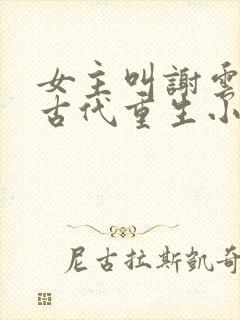 女主叫謝雲
古代重生小
尼古拉斯凱奇